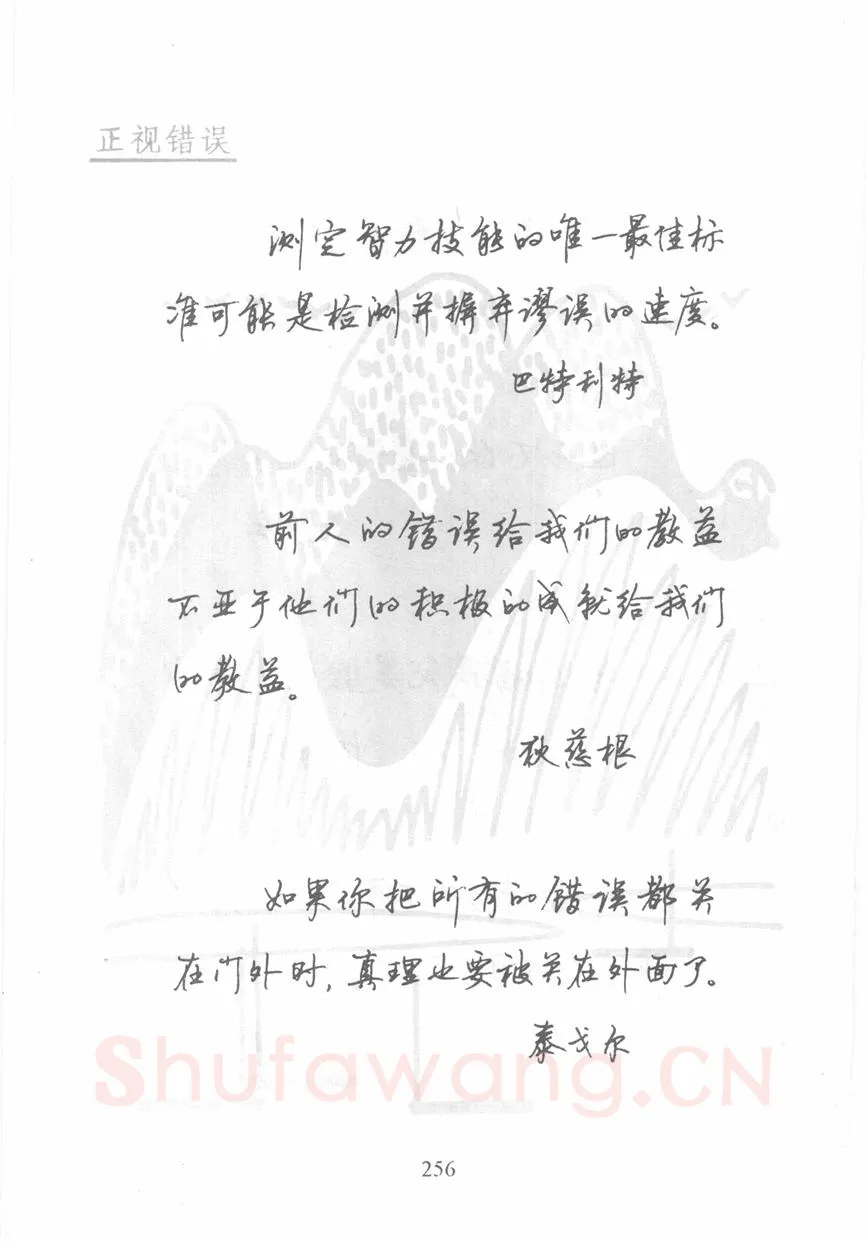 正视错误
测定智力技能的唯一最佳标
准可能是检测并摒弃谬误的速度。
巴特利特
前人的错误给我们的教益
不亚于他们的积极的成就给我们
的教益。
狄慈根
如果你把所有的错误都关
在门外时,真理也要被关在外面了。
泰戈尔
Shufawang.CN
256